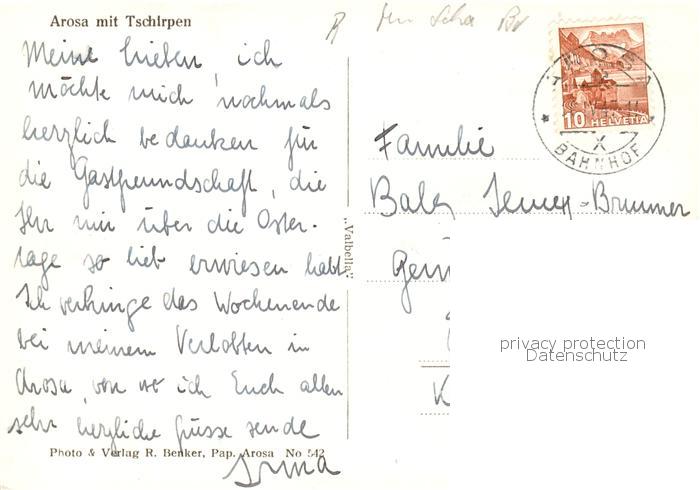 Arosa mit Tschirpen
Meine Lieben, ich
möchte mich nochmals
herzlich bedanken für
die Gastfreundschaft, die
Ihr mir über die Oster-
tage so lieb erwiesen habt.
Ich verbringe das Wochenende
bei meinem Verlobten in
Arosa, von wo ich Euch allen
sehr herzliche Grüsse sende
Irma
Photo & Verlag R. Benker, Pap. Arosa No 542
„Valbella"
AROSA
BAHNHOF
X
10 HELVETIA
Familie
Brunner
privacy protection
Datenschutz